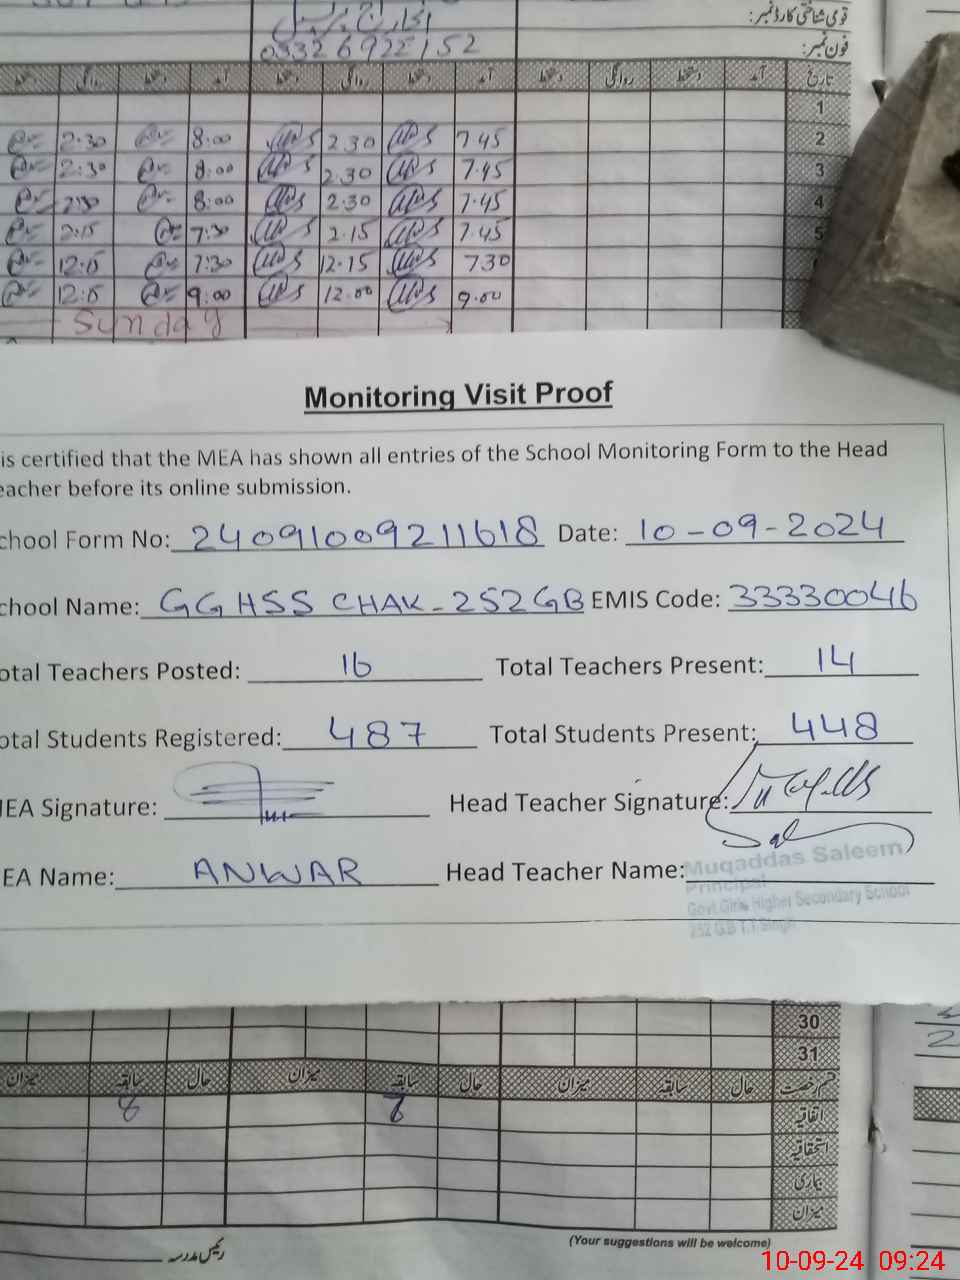 قومی شناختی کارڈ نمبر:
انچارج پرنسپل
فون نمبر:
03326922152
تاریخ آمد دستخط روانگی دستخط آمد دستخط روانگی دستخط آمد دستخط روانگی دستخط
1
2 7 45 2 30 8:00 2:30
3 7.45 2.30 8:00 2:30
4 7.45 2.30 8:00 2:30
5 7.45 2.15 7:30 2:15
730 12.15 7:30 12:15
9.00 12.00 9:00 12:15
Sunday
Monitoring Visit Proof
is certified that the MEA has shown all entries of the School Monitoring Form to the Head
eacher before its online submission.
chool Form No: 24091009211618 Date: 10-09-2024
chool Name: GGHSS CHAK-252GB EMIS Code: 33330046
otal Teachers Posted: 16 Total Teachers Present: 14
otal Students Registered: 487 Total Students Present: 448
EA Signature: Head Teacher Signature:
EA Name: ANWAR Head Teacher Name: Muqaddas Saleem
Principal
Govt.Girls Higher Secondary School
252 G.B T.T.Singh
30
31
قسم رخصت حال سابقہ میزان حال سابقہ میزان حال سابقہ میزان
اتفاقیہ 8 8
استحقاقیہ
بیماری
میزان
رئیس مدرسہ
(Your suggestions will be welcome)
10-09-24 09:24